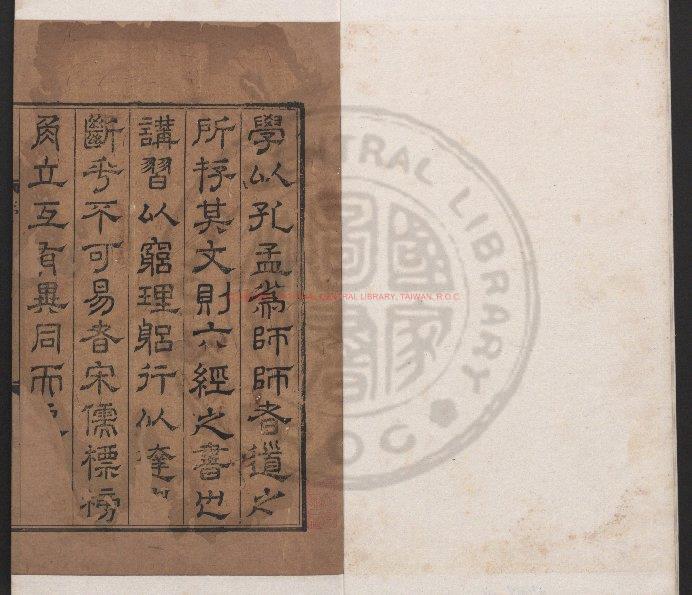 學以孔孟為師師者道之
所存其文則六經之書也
講習以窮理躬行以達
斷乎不可易者宋儒標榜
角立互有異同而
CENTRAL LIBRARY, TAIWAN, R.O.C.
CENTRAL LIBRARY
ROC